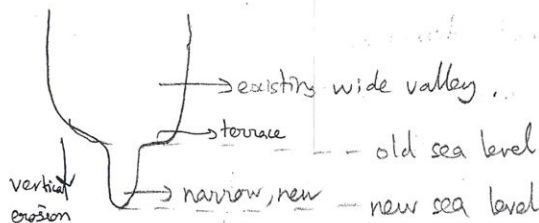 existing wide valley.
terrace
old sea level
vertical
erosion
narrow, new
new sea level